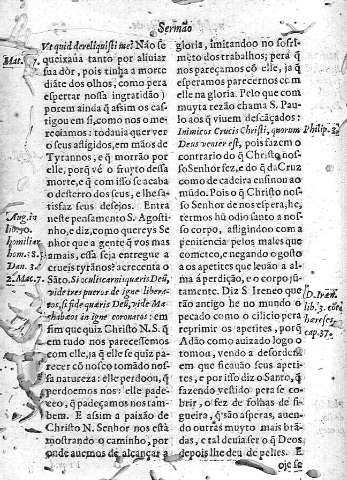 Sermão
Vt quid dereliquisti me? Não se
queixaua tanto por aliuiar
sua dòr, pois tinha a morte
diãte dos olhos, como pera
espertar nossa ingratidão)
porem ainda q̃ assim os cas-
tigou em si, como nos o me-
reciamos: todauia quer ver
o seus astigidos, em mãos de
Tyrannos, e q̃ morrão por
elle, porq̃ vé o fruyto dessa
morte, e q̃ com isso se acaba
o desterro dos seus, e lhe sa-
tisfaz seus desejos. Entra
neste pensamento S. Agosti-
nho, e diz, como quereys Se
nhor que a gente q̃ vos mas
amais, essa seja entregue a
crueis tyrãnos? acrecenta o
Sãto. Si oculis carnis quæris Deũ,
vide tres pueros de igne libera-
tos, si fide quæris Deũ, vide Ma-
chabæos in igne coronatos: em
sim que quiz Christo N. S. q̃
em tudo nos parecessemos
com elle, ja q̃ elle se quiz pa-
recer cõ nosco tomãdo nos-
sa natureza: elle perdoou, q̃
perdoemos nos: elle pade-
ceo, q̃ padeçamos nos tam-
bem. E assim a paixão de
Christo N. Senhor nos està
mostrando o caminho, por
onde auemos de alcançar a
Mat. 27.
Aug. in
Dan. 3.
2. Mac. 7.
gloria, imitando no sofri-
mẽto dos trabalhos; pera q̃
nos pareçamos cõ elle, ja q̃
esperamos parecernos com
elle na gloria. Pelo que com
muyta rezão chama S. Pau-
lo aos q̃ viuem descãçados:
Inimicos Crucis Christi, quorum
Deus venter est, pois fazem o
contrario do q̃ Christo nos-
so Senhor fez, e do q̃ da Cruz
como de cadeira ensinou ao
mũdo. Pois q̃ Christo nos-
so Senhor de nos espera, he,
termos hũ odio santo a nos-
so corpo, astigindoo com a
penitencia pelos males que
cometeo, e negando o gosto
a os apetites que leuão a al-
ma â perdição, e o corpo jun-
tamente. Diz S Ireneo que
tão antigo he no mundo o
pecado como o cilicio pera
reprimir os apetites, porq̃
Adão como auizado logo o
tomou, vendo a desordem
em que ficauão seus apeti-
tes, e por isso diz o Santo, q̃
fazendo vestido pera se co-
brir, o fez de folhas de fi-
gueira, q̃ são asperas, auen-
do outras muyto mais brã-
das, e tal deuia ser o q̃ Deos
depois lhe deu de pelles. E
oje se
Philip. 3.
D. Iren.
lib. 3. cõt.
hereses,
cap. 37.